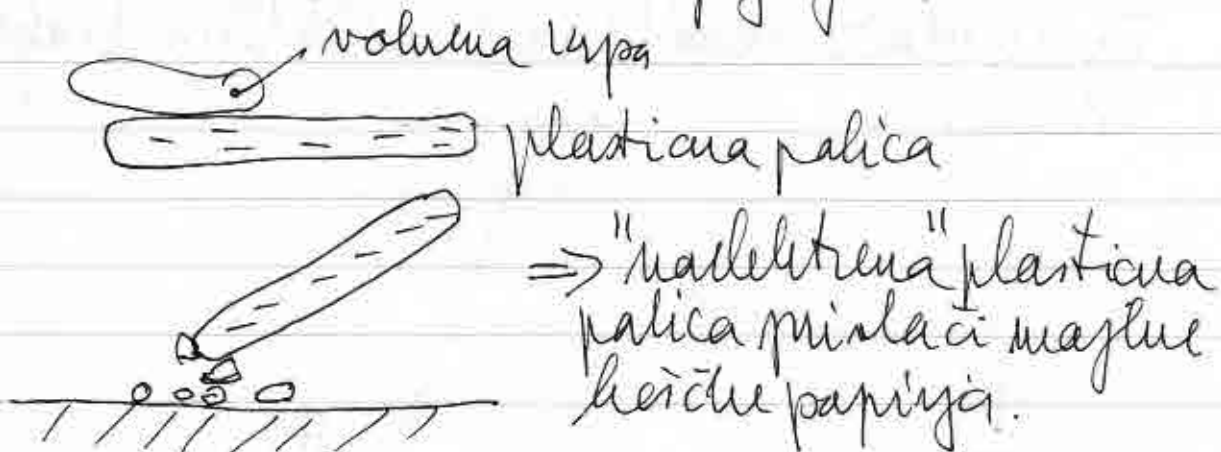 volnena krpa
plastična palica
⇒ "naelektrena" plastična
palica privlači majhne
koščke papirja.